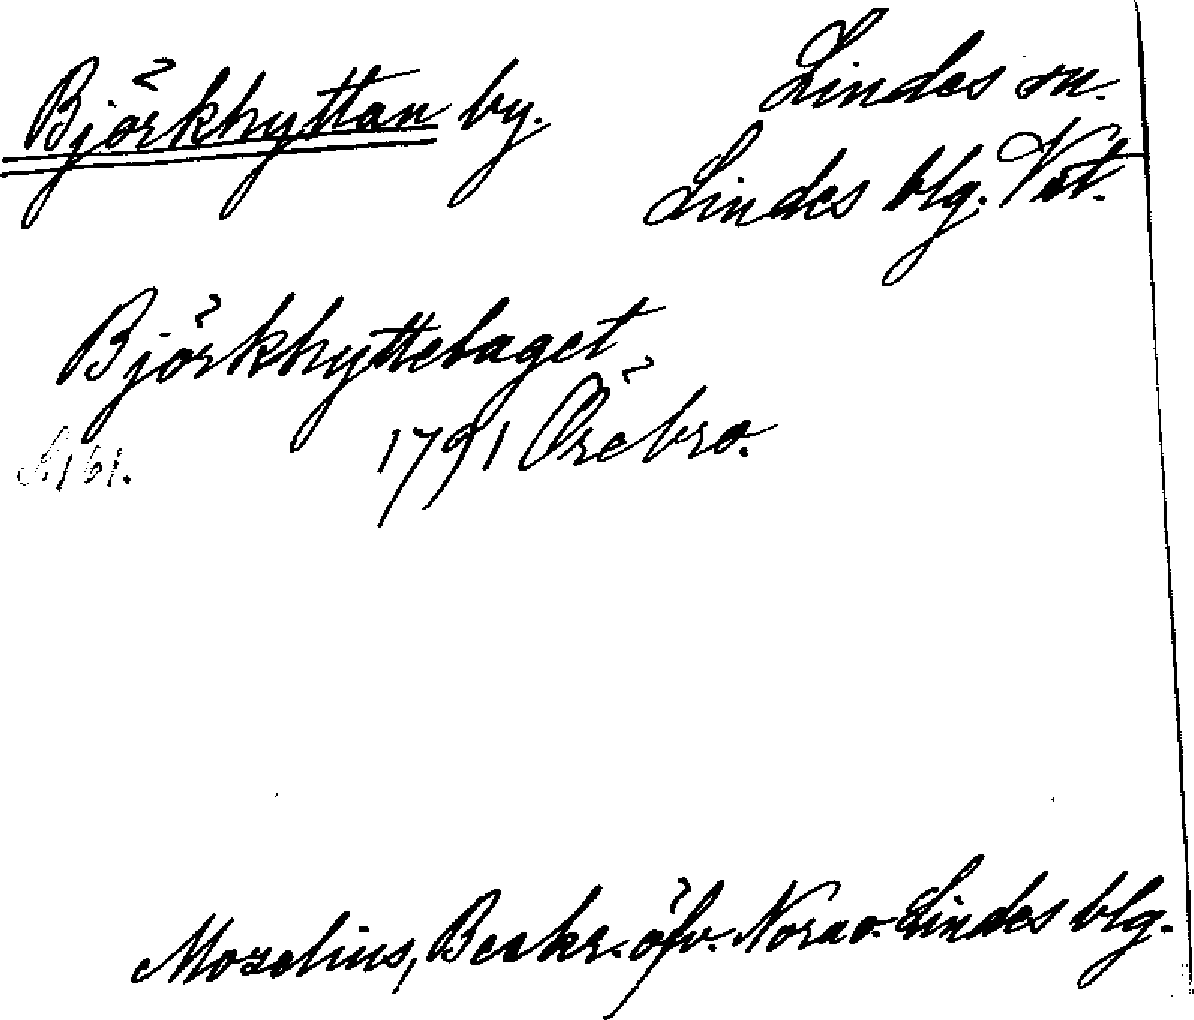 Björkhyttan by.
Lindes sn.
Lindes blg. Vstm.
Björkhyttelaget
1791 Örebro.
Mozelius, Beskr. öfv. Nora o. Lindes blg.